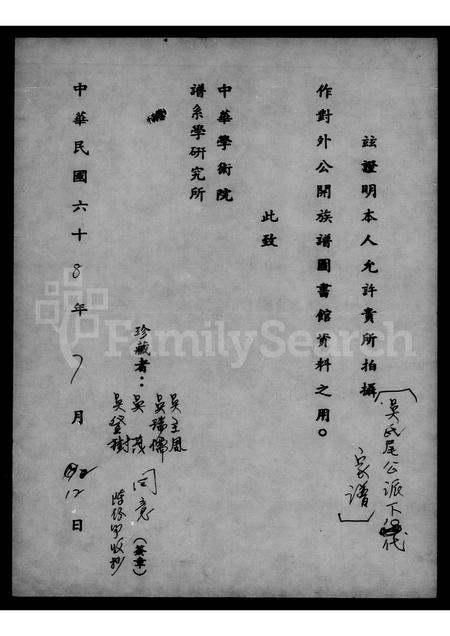 茲證明本人允許貴所拍攝
吳氏尾公派下
家譜
作對外公開族譜圖書館資料之用。
此致
中華學術院
譜系學研究所
珍藏者：
吳主恩
吳瑞儒
吳茂
吳登樹
同意
(簽章)
中華民國六十8年7月12日
FamilySearch